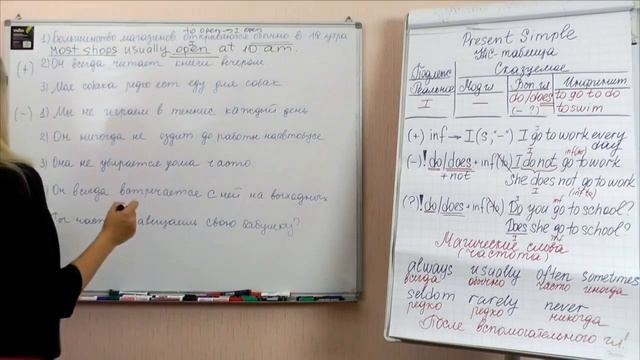 to open → I open
1) Большинство магазинов открываются обычно в 10 утра
Most shops usually open at 10 am.
(+) 2) Он всегда читает книги вечером
3) Моя собака редко ест еду для собак
(-) 1) Мы не играем в теннис каждый день
2) Он никогда не ездит до работы на автобусе
3) Она не убирается дома часто
Он всегда встречается с ней на выходных
Ты часто навещаешь свою бабушку?
Present Simple
таблица
Сказуемое
Вспом гл
Инфинитив
I
—
do/does
to go to do
(- ?)
to swim
(+) inf → I (s, "-") I go to work every day
(-) ! do/does + inf(to) I do not go to work
+ not
She does not go to work
(?) ! do/does + inf(to) Do you go to school?
Does she go to school?
Магические слова
(частота)
always usually often sometimes
всегда обычно часто иногда
seldom rarely never
редко редко никогда
После вспомогательного гл!